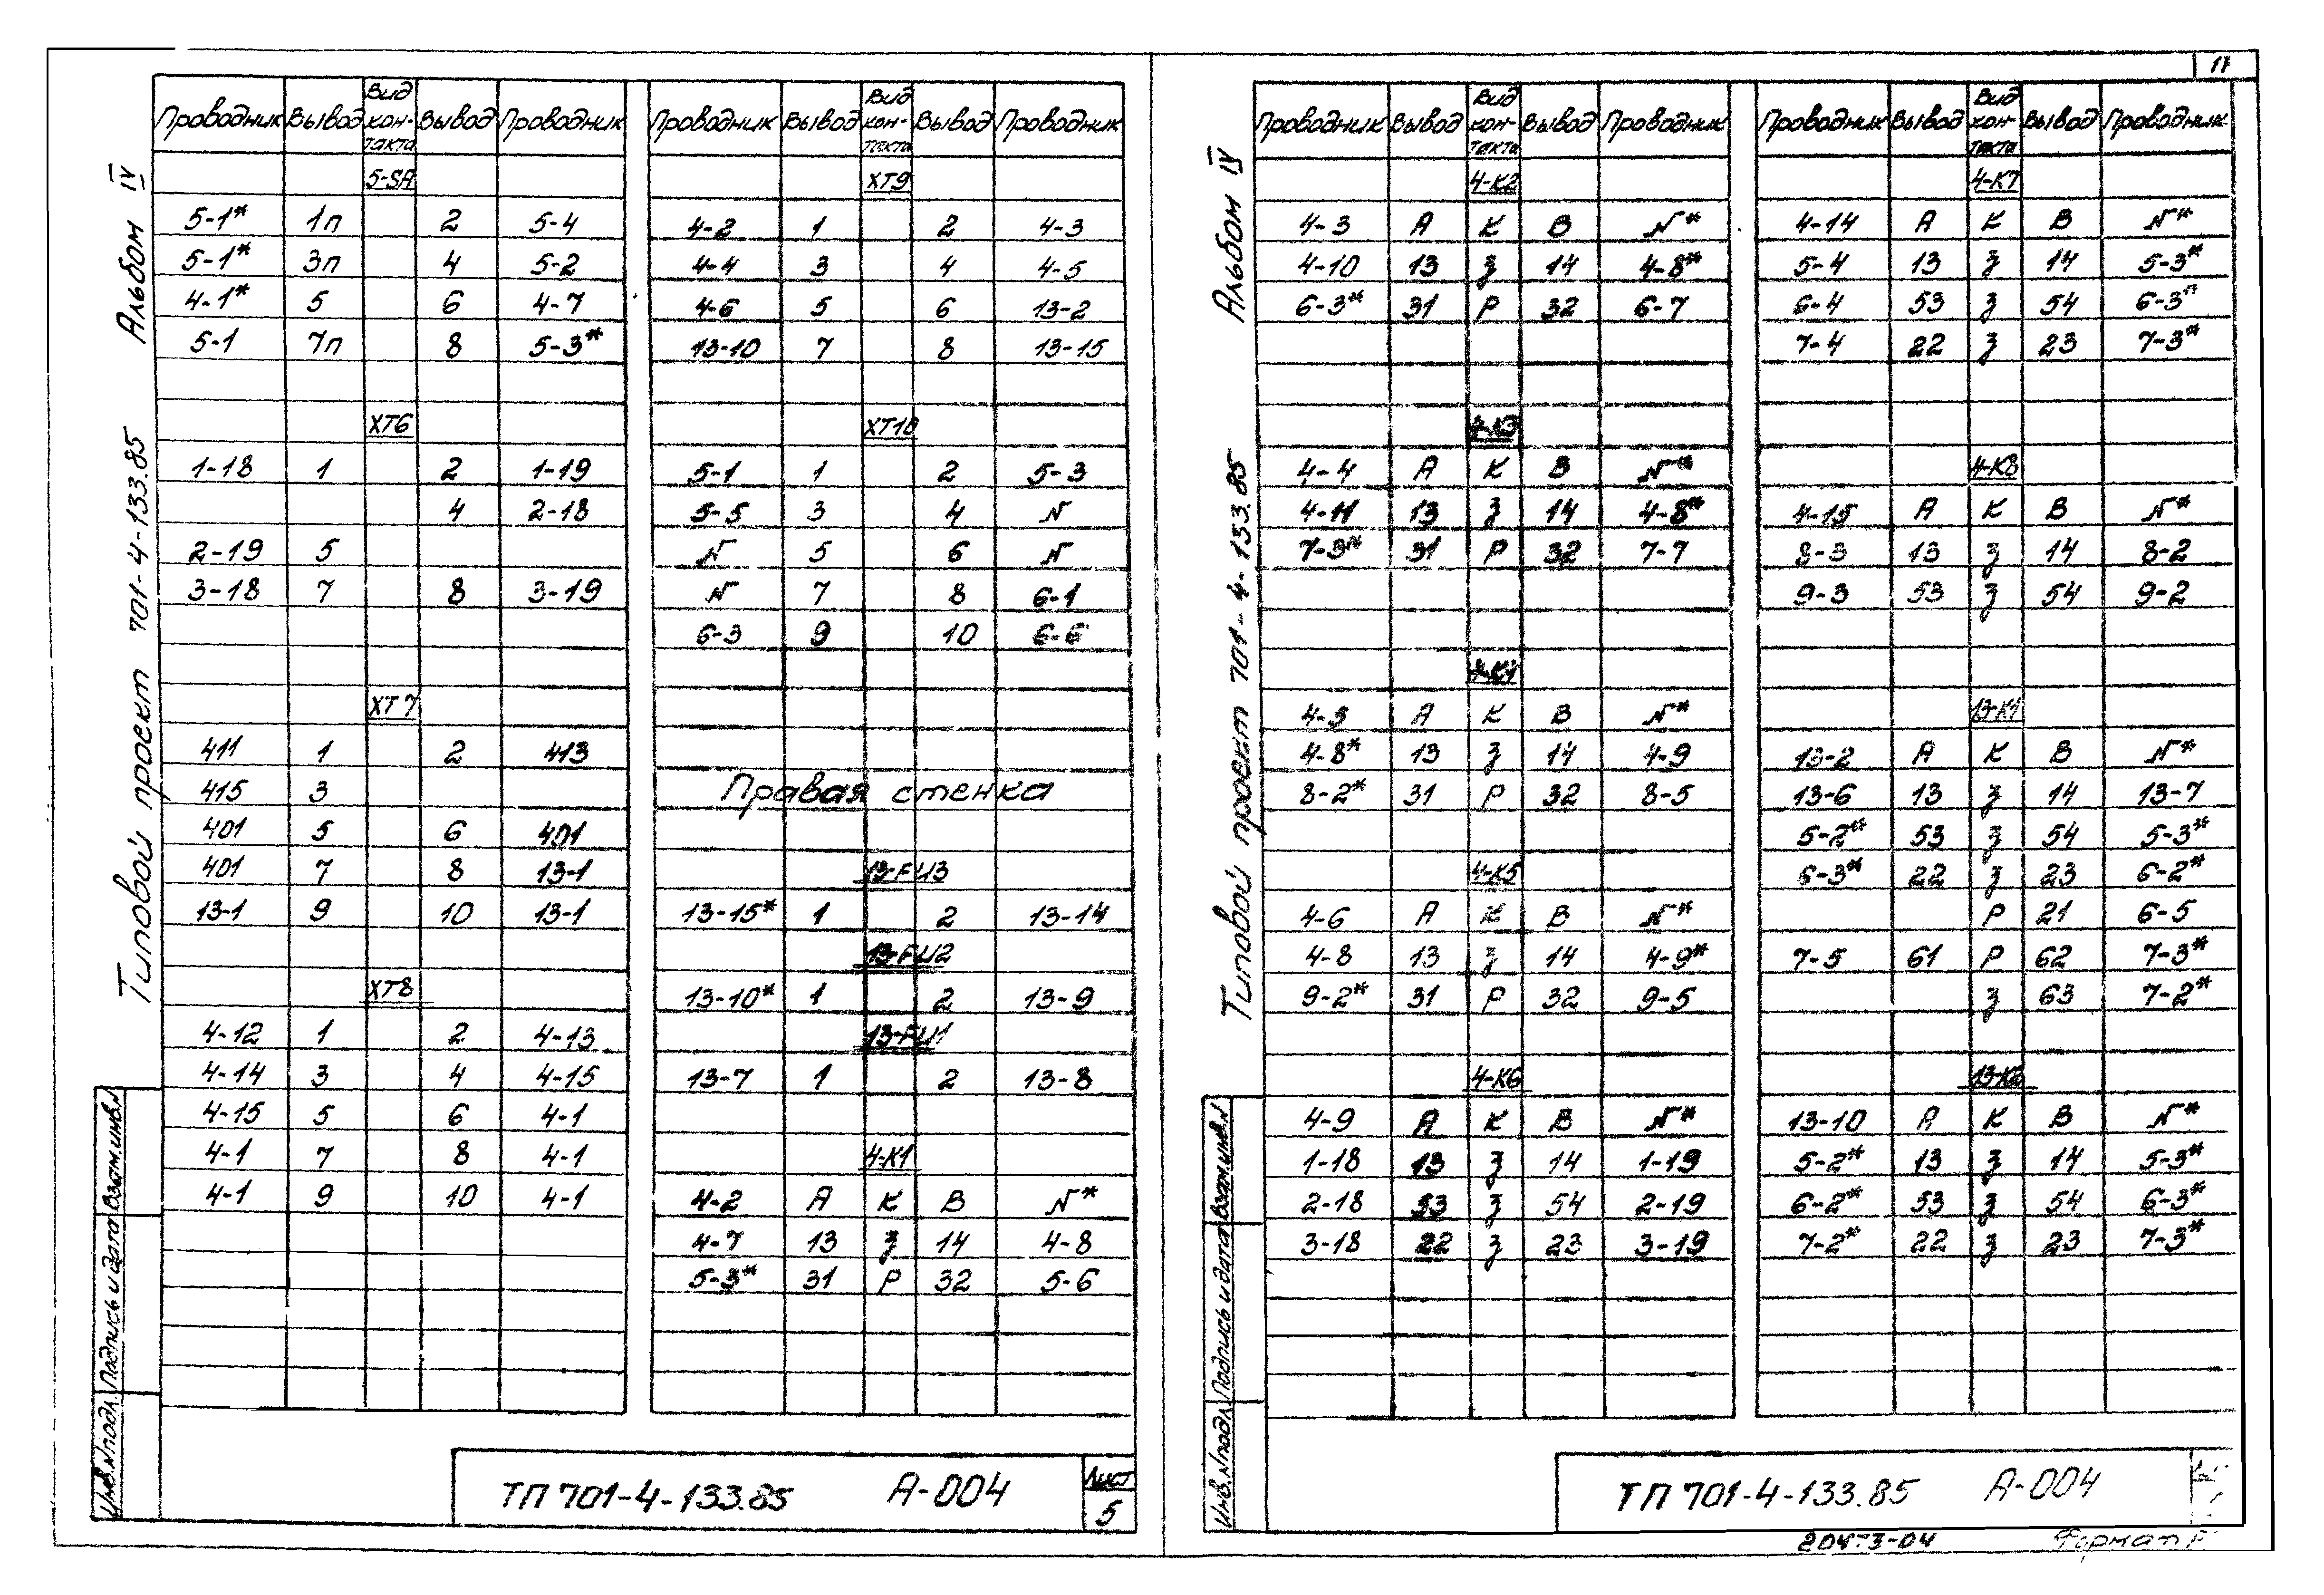 17
Альбом IV
Типовой проект 701-4-133.85
Проводник Вывод Вид кон- такта Вывод Проводник
5-SA
5-1* 1п 2 5-4
5-1* 3п 4 5-2
4-1* 5 6 4-7
5-1 7п 8 5-3*
XT6
1-18 1 2 1-19
4 2-18
2-19 5
3-18 7 8 3-19
XT7
411 1 2 413
415 3
401 5 6 401
401 7 8 13-1
13-1 9 10 13-1
XT8
4-12 1 2 4-13
4-14 3 4 4-15
4-15 5 6 4-1
4-1 7 8 4-1
4-1 9 10 4-1
Проводник Вывод Вид кон- такта Вывод Проводник
XT9
4-2 1 2 4-3
4-4 3 4 4-5
4-6 5 6 13-2
13-10 7 8 13-15
XT10
5-1 1 2 5-3
5-5 3 4 N
N 5 6 N
N 7 8 6-1
6-3 9 10 6-6
Правая стенка
13-FU3
13-15* 1 2 13-14
13-FU2
13-10* 1 2 13-9
13-FU1
13-7 1 2 13-8
4-К1
4-2 А К В N*
4-7 13 З 14 4-8
5-3* 31 Р 32 5-6
Инв.N подл. Подпись и дата Взам.инв.N
ТП 701-4-133.85 А-004
Лист
5
Альбом IV
Типовой проект 701-4-133.85
Проводник Вывод Вид кон- такта Вывод Проводник
4-К2
4-3 А К В N*
4-10 13 З 14 4-8*
6-3* 31 Р 32 6-7
4-К3
4-4 А К В N*
4-11 13 З 14 4-8*
7-3* 31 Р 32 7-7
4-К4
4-5 А К В N*
4-8* 13 З 14 4-9
8-2* 31 Р 32 8-5
4-К5
4-6 А К В N*
4-8 13 З 14 4-9*
9-2* 31 Р 32 9-5
4-К6
4-9 А К В N*
1-18 13 З 14 1-19
2-18 53 З 54 2-19
3-18 22 З 23 3-19
Проводник Вывод Вид кон- такта Вывод Проводник
4-К7
4-14 А К В N*
5-4 13 З 14 5-3*
6-4 53 З 54 6-3*
7-4 22 З 23 7-3*
4-К8
4-15 А К В N*
8-3 13 З 14 8-2
9-3 53 З 54 9-2
13-К1
13-2 А К В N*
13-6 13 З 14 13-7
5-2* 53 З 54 5-3*
6-3* 22 З 23 6-2*
Р 21 6-5
7-5 61 Р 62 7-3*
З 63 7-2*
13-К2
13-10 А К В N*
5-2* 13 З 14 5-3*
6-2* 53 З 54 6-3*
7-2* 22 З 23 7-3*
Инв.N подл. Подпись и дата Взам.инв.N
ТП 701-4-133.85 А-004
Формат